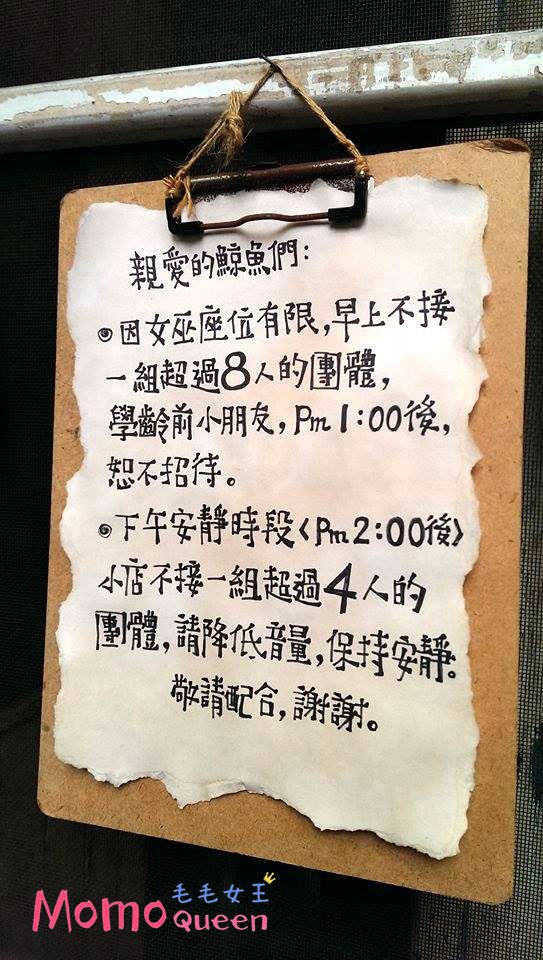 親愛的鯨魚們:
因女巫座位有限,早上不接
一組超過8人的團體,
學齡前小朋友,Pm 1:00後,
恕不招待。
下午安靜時段<Pm 2:00後>
小店不接一組超過4人的
團體,請降低音量,保持安靜。
敬請配合,謝謝。
毛毛女王
Momo Queen